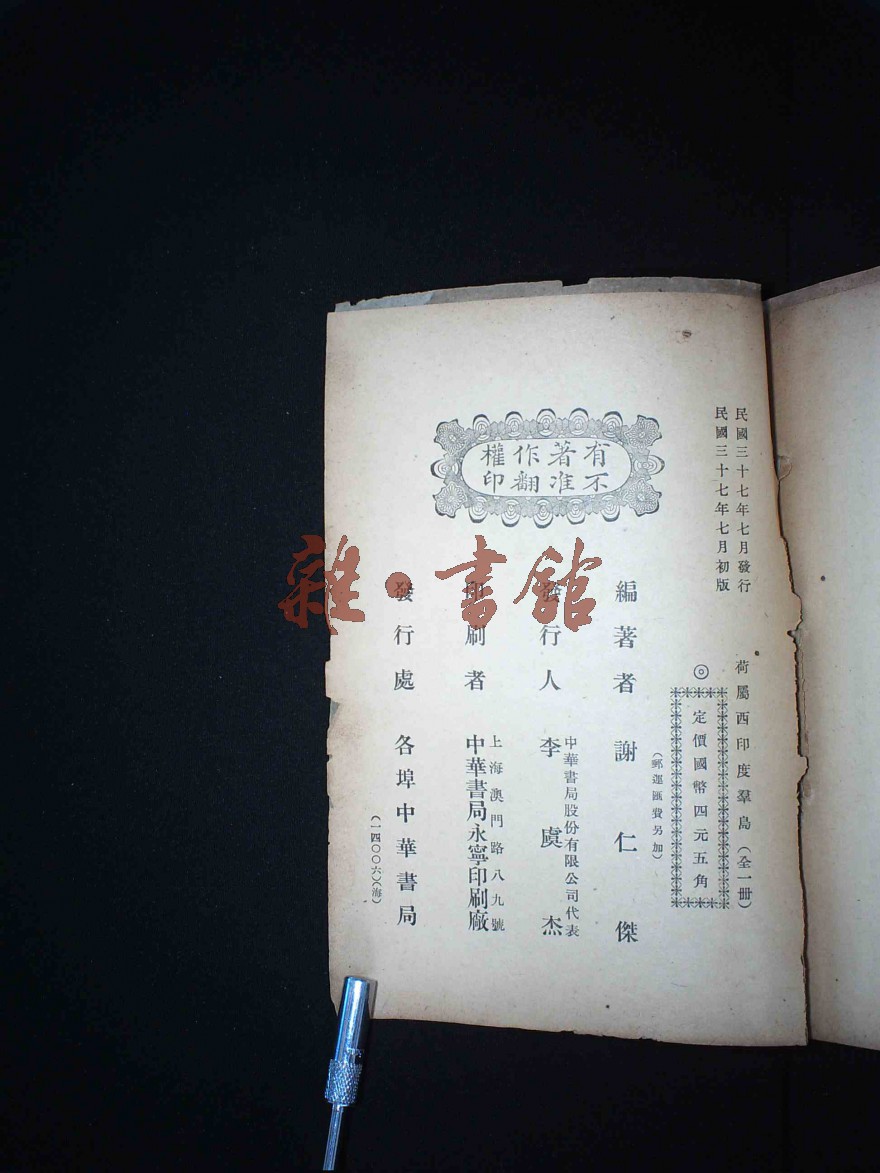 民國三十七年七月發行
民國三十七年七月初版
荷屬西印度羣島（全一冊）
◎定價國幣四元五角
（郵運匯費另加）
有著作權
不准翻印
編著者 謝仁傑
發行人 中華書局股份有限公司代表
李虞杰
印刷者 上海澳門路八九號
中華書局永寧印刷廠
發行處 各埠中華書局
（一四〇〇六）（海）
雜·書館